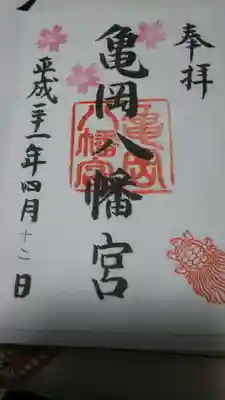 奉拝
亀岡八幡宮
亀岡八幡宮
平成三十一年四月十二日